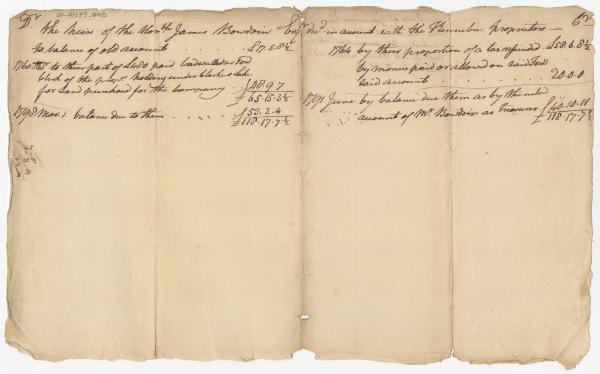 Dr the heirs of the Honble James Bowdoin Esq in account with the Kennebec Proprietors — Cr
to balance of old account . . . . . £17.5.8½
1760 to their part of paid
clerk of the holding under
for Land purchased for the company £48.9.7
£65.15.3½
1798 Mar. 1. balance due to them . . . . £53.2.4
£118.17.7½
1764 by their proportion of a tax £58.6.8½
by monies paid or allowed on said
said account . . . . . 20.0.0
1791 June by balance due them as by the
account of Mr Bowdoin as Treasurer £40.10.11
£118.17.7½